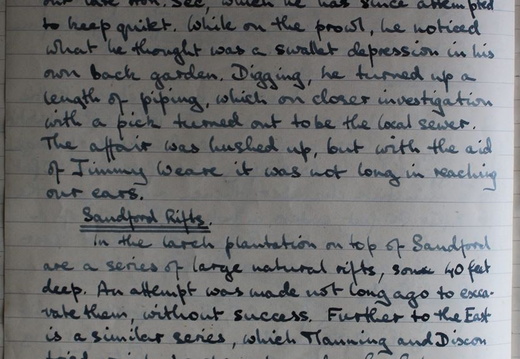 our late Hon. Sec, which he has since attempted
to keep quiet. While on the prowl, he noticed
what he thought was a swallet depression in his
own back garden. Digging, he turned up a
length of piping, which on closer investigation
with a pick turned out to be the local sewer.
The affair was hushed up, but with the aid
of Jimmy Weare it was not long in reaching
our ears.
Sandford Rifts.
In the larch plantation on top of Sandford
are a series of large natural rifts, some 40 feet
deep. An attempt was made not long ago to exca-
vate them, without success. Further to the East
is a similar series, which Manning and Discon